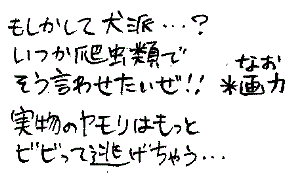 もしかして犬派…?
いつか爬虫類で
そう言わせたいぜ!!
なお
*画力
実物のヤモリはもっと
ビビって逃げちゃう…